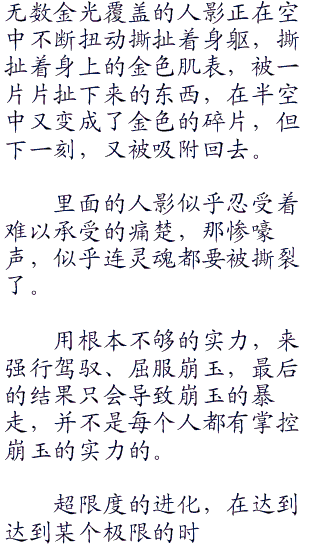 无数金光覆盖的人影正在空
中不断扭动撕扯着身躯，撕
扯着身上的金色肌表，被一
片片扯下来的东西，在半空
中又变成了金色的碎片，但
下一刻，又被吸附回去。
里面的人影似乎忍受着
难以承受的痛楚，那惨嚎
声，似乎连灵魂都要被撕裂
了。
用根本不够的实力，来
强行驾驭、屈服崩玉，最后
的结果只会导致崩玉的暴
走，并不是每个人都有掌控
崩玉的实力的。
超限度的进化，在达到
达到某个极限的时